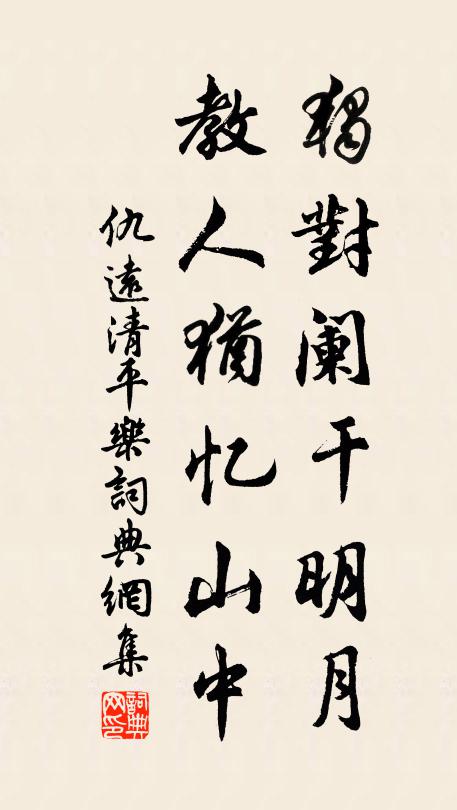 獨對阑干明月
教人猶忆山中
仇遠清平樂詞典網集
詞典网印